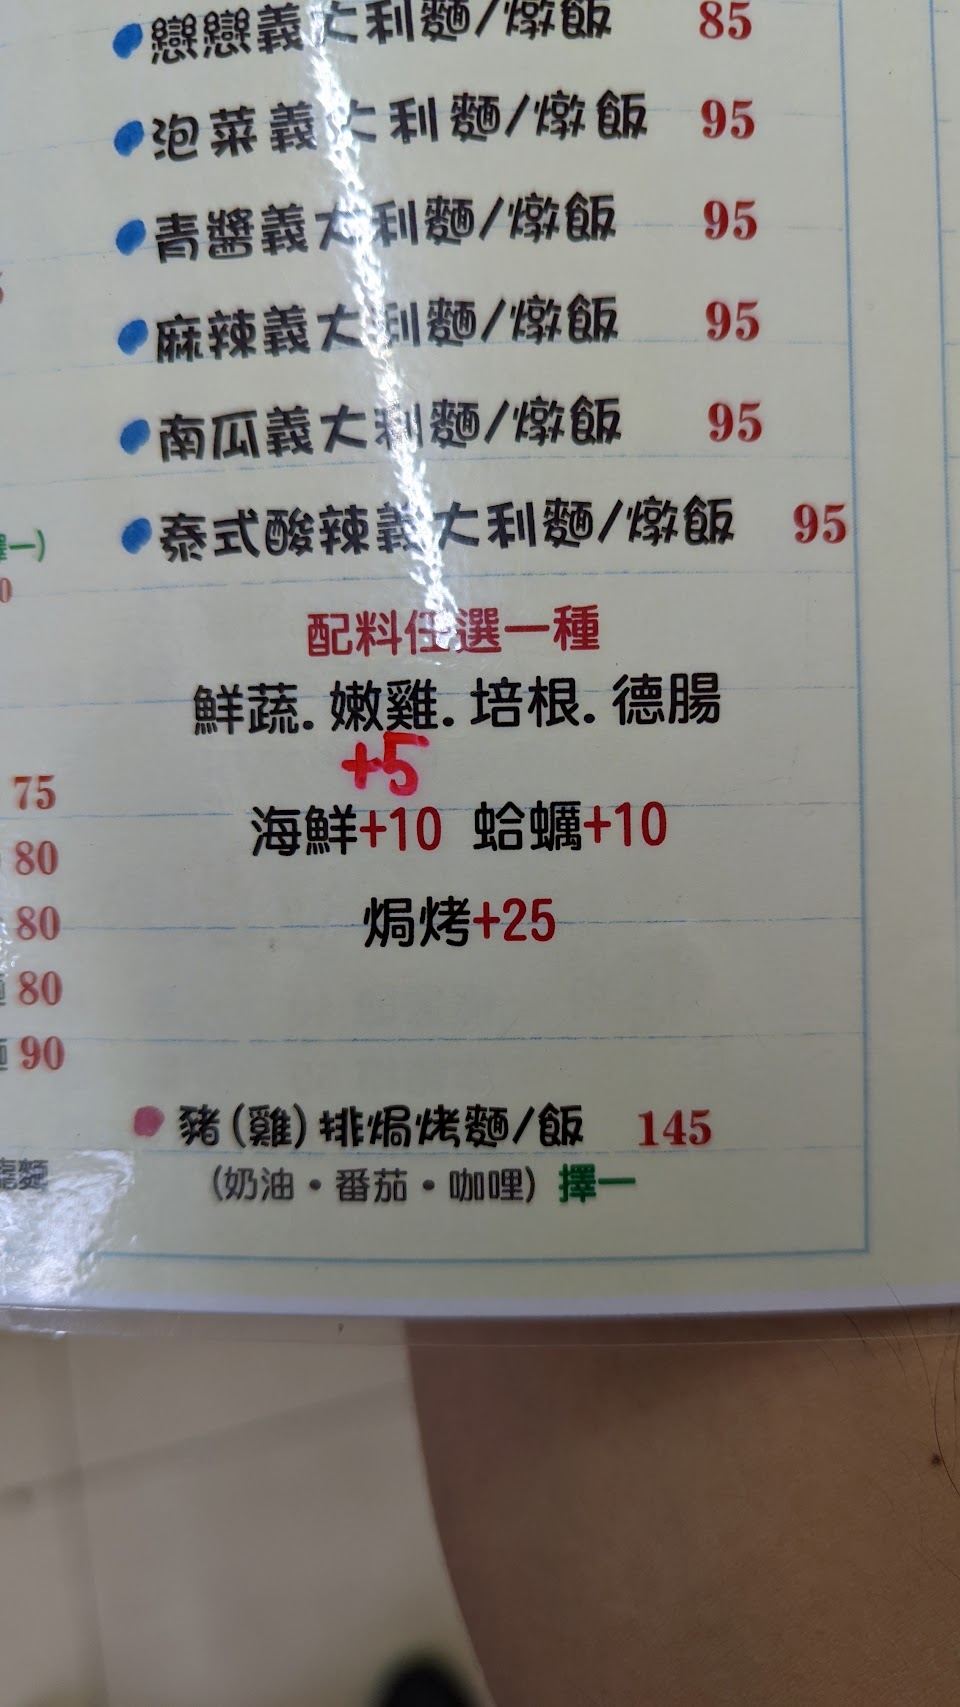 戀戀義大利麵/燉飯 85
泡菜義大利麵/燉飯 95
青醬義大利麵/燉飯 95
麻辣義大利麵/燉飯 95
南瓜義大利麵/燉飯 95
泰式酸辣義大利麵/燉飯 95
一)
0
配料任選一種
鮮蔬.嫩雞.培根.德腸
+5
海鮮+10 蛤蠣+10
焗烤+25
75
80
80
80
90
豬(雞)排焗烤麵/飯 145
(奶油・番茄・咖哩) 擇一